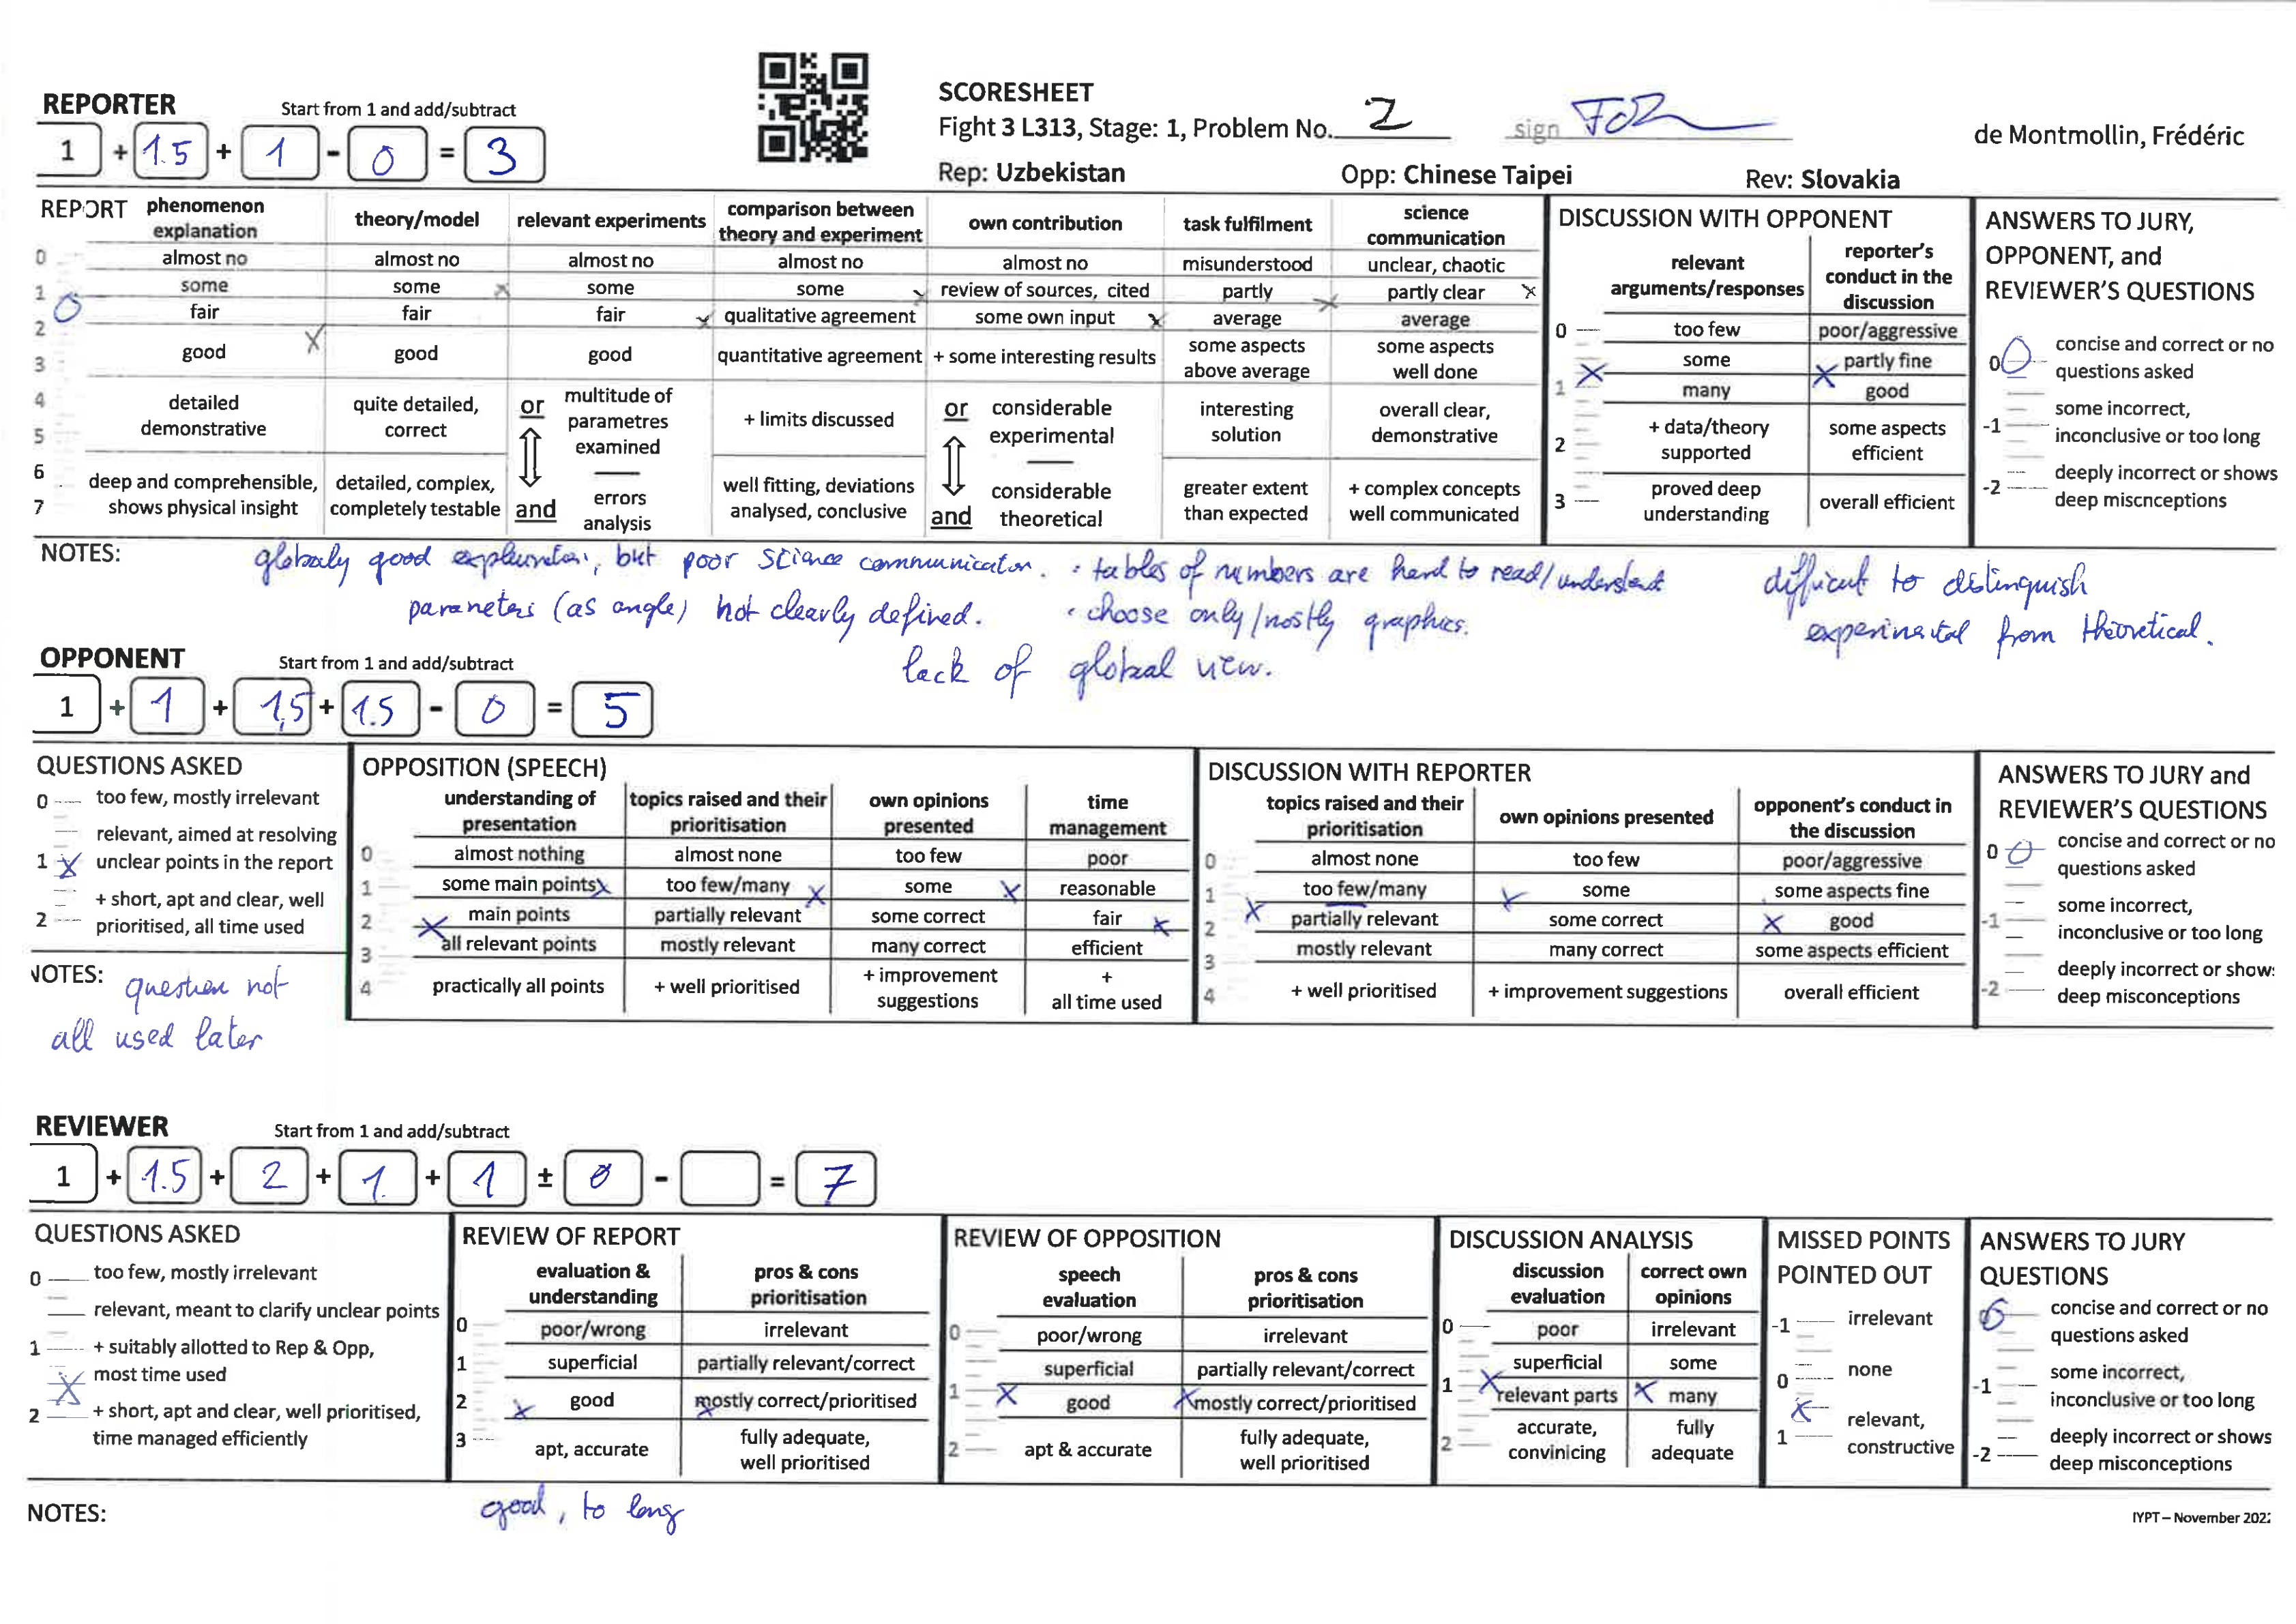 SCORESHEET
Fight 3 L313, Stage: 1, Problem No. 2 sign
de Montmollin, Frédéric
Rep: Uzbekistan Opp: Chinese Taipei Rev: Slovakia
REPORTER Start from 1 and add/subtract
1 + 1.5 + 1 - 0 = 3
REPORT
phenomenon explanation
theory/model
relevant experiments
comparison between theory and experiment
own contribution
task fulfilment
science communication
0 almost no almost no almost no almost no almost no misunderstood unclear, chaotic
1 some some some some review of sources, cited partly partly clear
fair fair fair qualitative agreement some own input average average
2
3 good good good quantitative agreement + some interesting results some aspects above average some aspects well done
4 5 detailed demonstrative quite detailed, correct or multitude of parametres examined + limits discussed or considerable experimental interesting solution overall clear, demonstrative
6 7 deep and comprehensible, shows physical insight detailed, complex, completely testable and errors analysis well fitting, deviations analysed, conclusive and considerable theoretical greater extent than expected + complex concepts well communicated
DISCUSSION WITH OPPONENT
relevant arguments/responses reporter's conduct in the discussion
0 too few poor/aggressive
some partly fine
1 many good
2 + data/theory supported some aspects efficient
3 proved deep understanding overall efficient
ANSWERS TO JURY, OPPONENT, and REVIEWER'S QUESTIONS
0 concise and correct or no questions asked
-1 some incorrect, inconclusive or too long
-2 deeply incorrect or shows deep miscnceptions
NOTES:
globaly good explanation, but poor science communication.
parameters (as angle) not clearly defined.
• tables of numbers are hard to read/understand
• choose only/mostly graphics.
lack of global view.
difficult to distinguish
experimental from theoretical.
OPPONENT Start from 1 and add/subtract
1 + 1 + 1,5 + 1.5 - 0 = 5
QUESTIONS ASKED
0 too few, mostly irrelevant
relevant, aimed at resolving
1 unclear points in the report
+ short, apt and clear, well
2 prioritised, all time used
NOTES: question not
all used later
OPPOSITION (SPEECH)
understanding of presentation topics raised and their prioritisation own opinions presented time management
0 almost nothing almost none too few poor
1 some main points too few/many some reasonable
2 main points partially relevant some correct fair
3 all relevant points mostly relevant many correct efficient
4 practically all points + well prioritised + improvement suggestions + all time used
DISCUSSION WITH REPORTER
topics raised and their prioritisation own opinions presented opponent's conduct in the discussion
0 almost none too few poor/aggressive
1 too few/many some some aspects fine
2 partially relevant some correct good
3 mostly relevant many correct some aspects efficient
4 + well prioritised + improvement suggestions overall efficient
ANSWERS TO JURY and REVIEWER'S QUESTIONS
0 concise and correct or no questions asked
-1 some incorrect, inconclusive or too long
-2 deeply incorrect or show: deep misconceptions
REVIEWER Start from 1 and add/subtract
1 + 1.5 + 2 + 1 + 1 ± 0 - = 7
QUESTIONS ASKED
0 too few, mostly irrelevant
relevant, meant to clarify unclear points
1 + suitably allotted to Rep & Opp,
most time used
2 + short, apt and clear, well prioritised,
time managed efficiently
REVIEW OF REPORT
evaluation & understanding pros & cons prioritisation
0 poor/wrong irrelevant
1 superficial partially relevant/correct
2 good mostly correct/prioritised
3 apt, accurate fully adequate, well prioritised
REVIEW OF OPPOSITION
speech evaluation pros & cons prioritisation
0 poor/wrong irrelevant
superficial partially relevant/correct
1 good mostly correct/prioritised
2 apt & accurate fully adequate, well prioritised
DISCUSSION ANALYSIS
discussion evaluation correct own opinions
0 poor irrelevant
superficial some
1 relevant parts many
2 accurate, convinicing fully adequate
MISSED POINTS POINTED OUT
-1 irrelevant
0 none
1 relevant, constructive
ANSWERS TO JURY QUESTIONS
0 concise and correct or no questions asked
-1 some incorrect, inconclusive or too long
-2 deeply incorrect or shows deep misconceptions
NOTES: good, to long
IYPT – November 202